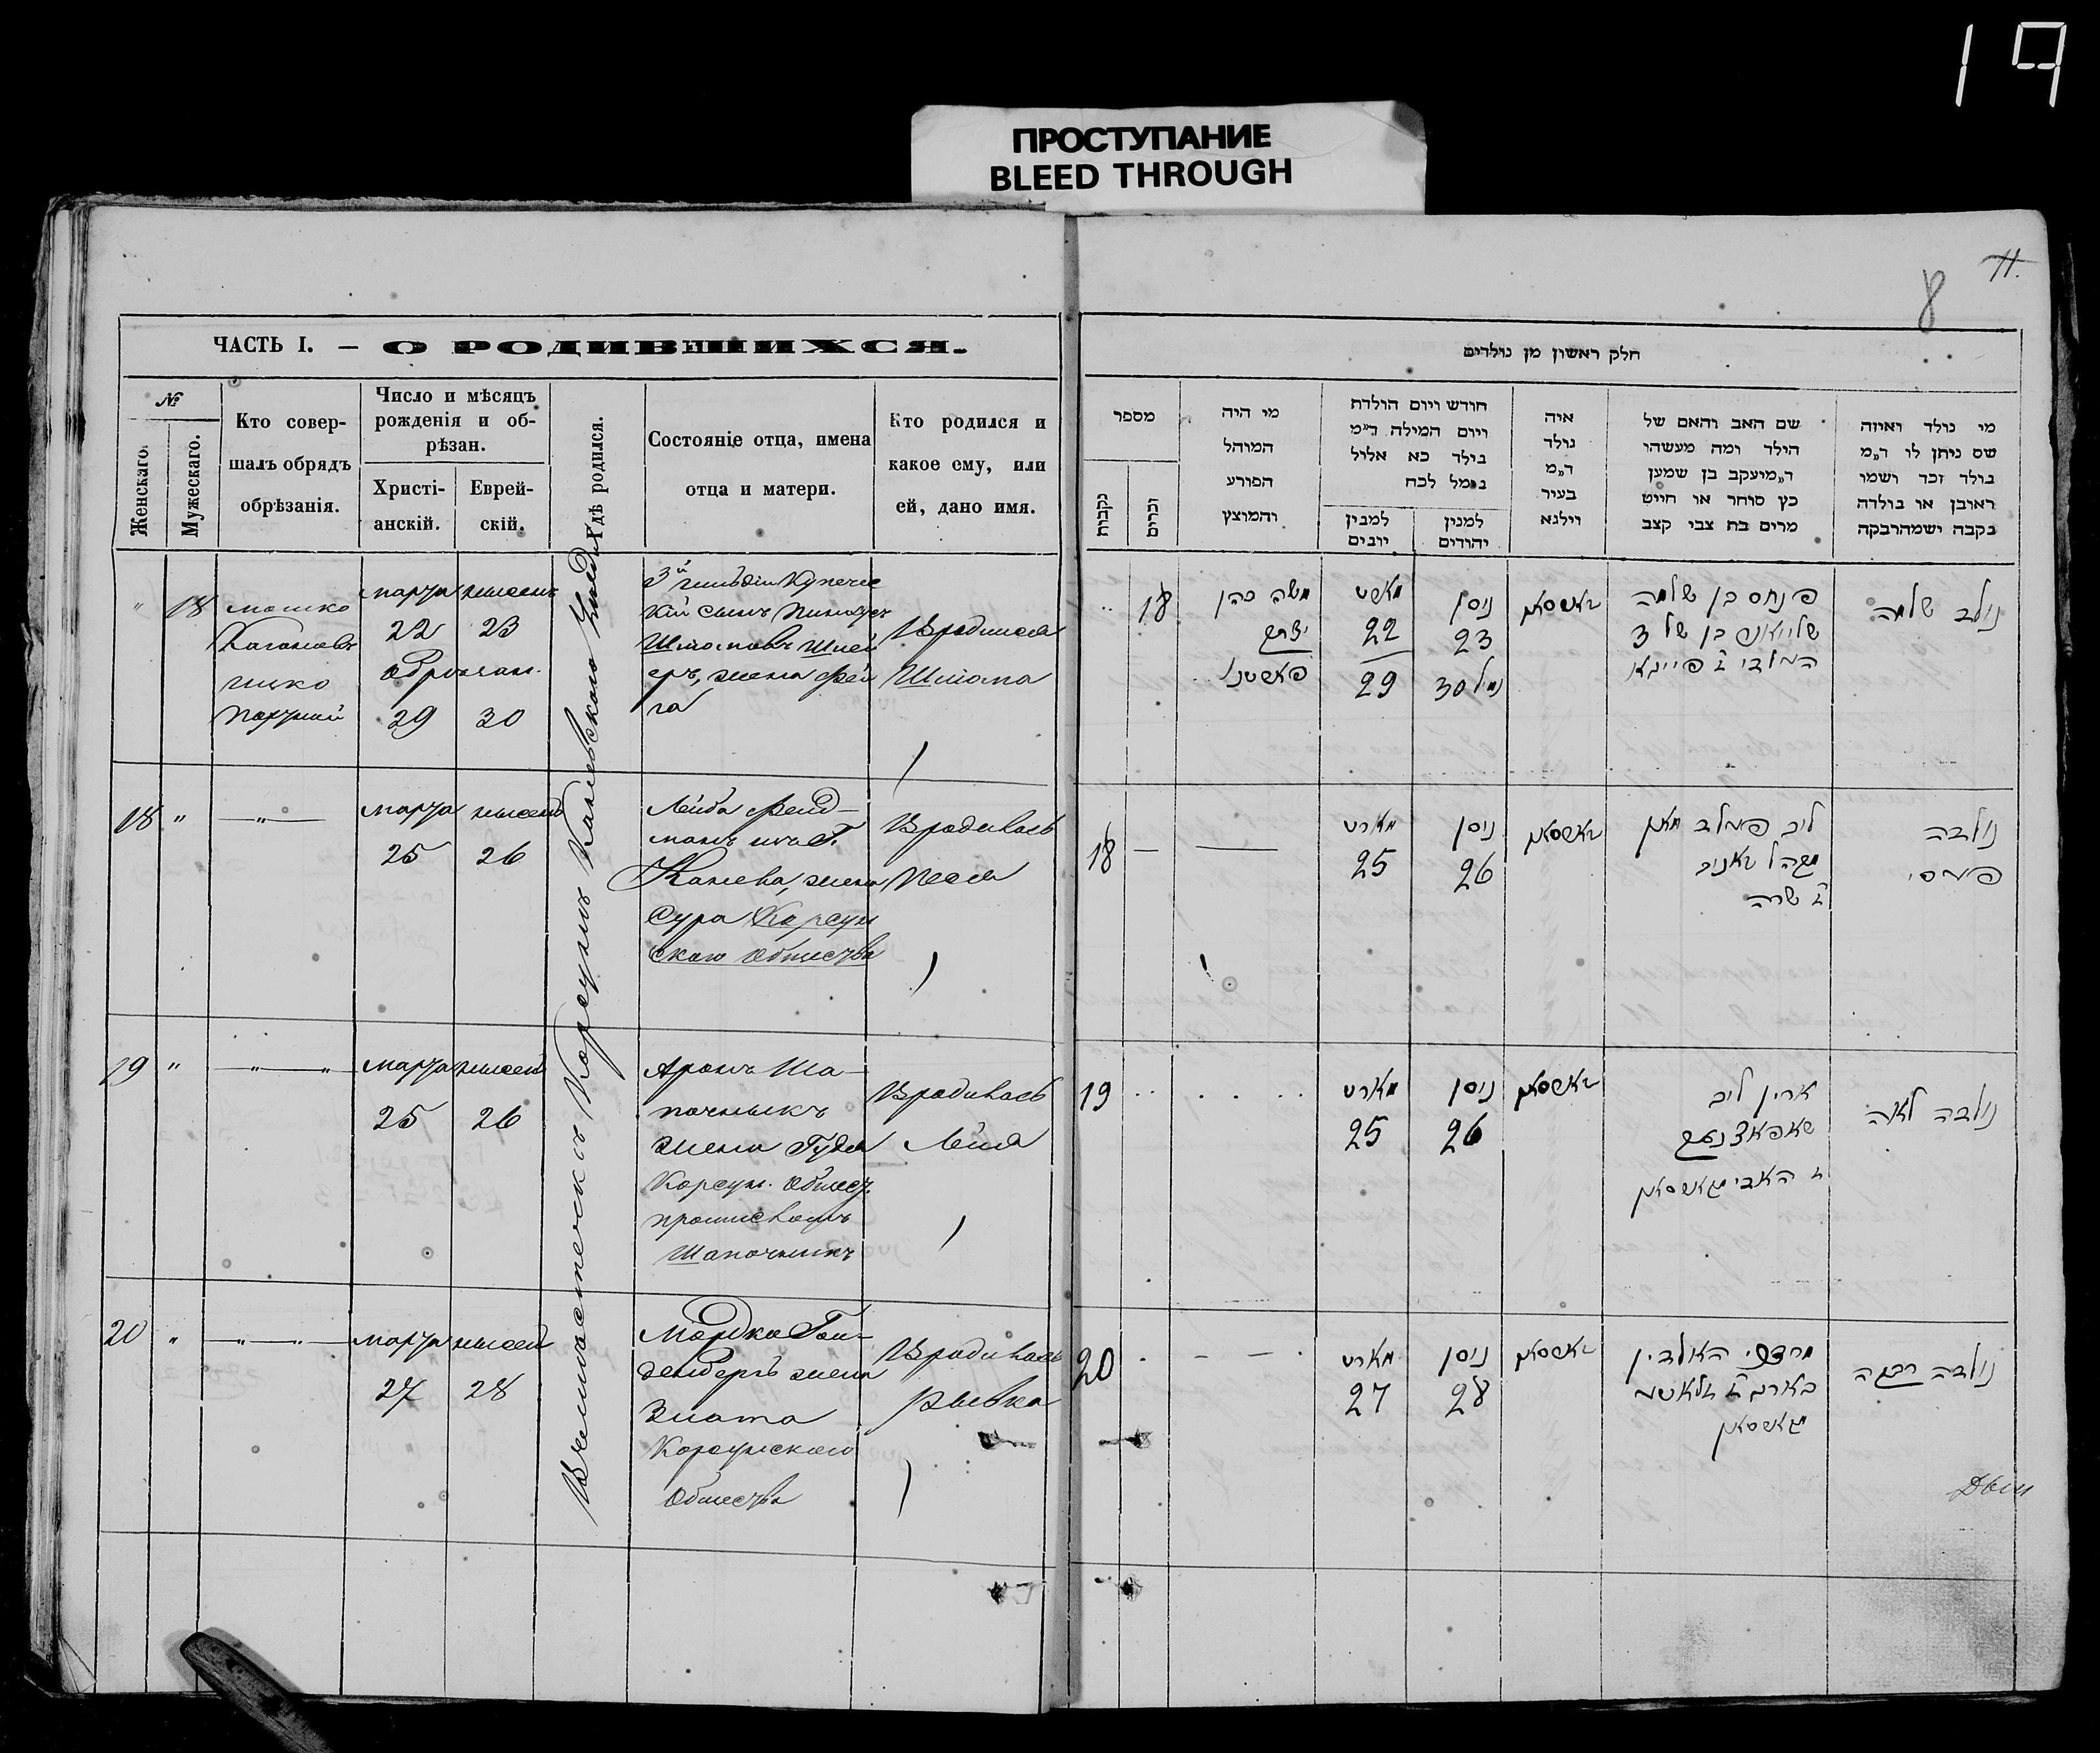 19
ПРОСТУПАНИЕ
BLEED THROUGH
11.
8
ЧАСТЬ I. — О РОДИВШИХСЯ.
№
Женскаго.
Мужескаго.
Кто совер-
шалъ обрядъ
обрѣзанія.
Число и мѣсяцъ
рожденія и об-
рѣзан.
Христі-
анскій.
Еврей-
скій.
Гдѣ родился.
Состояніе отца, имена
отца и матери.
Кто родился и
какое ему, или
ей, дано имя.
" 18
мошко
Кагановъ
ицко
марта
22
обрезан.
29
нисенъ
23
30
В местечкѣ Корсунъ Каневского
3й гильдіи Купечес
кій сынъ Пинхусъ
Шлиомовъ
жена Фей
га
Вродился
Шліома
18 " — " —
марта
25
нисенъ
26
Лейба Фельд-
манъ изъ Г.
Канева, жена
Сура Корсун
скаго Общества
Вродилась
Песя
19 " — " — "
марта
25
нисенъ
26
Аронъ Ша-
почныкъ
жена Гудя
Корсун. Общест.
Шапочныкъ
Вродилась
Лейя
20 " — " — " —
марта
27
нисенъ
28
Мордко Гол-
денбергъ жена
Злота
Корсунскаго
Общества
Вродилась
Рывка
חלק ראשון מן נולדים
מספר
נקבות
זכרים
מי היה
המוהל
הפורע
והמוצץ
חודש ויום הולדת
ויום המילה ד״מ
בילד כא אליל
נימל לכח
למנין
יונים
למנין
יהודים
איה
נולד
ד״מ
בעיר
וילנא
שם האב והאם של
הילד ומה מעשהו
ד״מ יעקב בן שמען
כץ סוחר או חייט
מרים בת צבי קצב
מי נולד ואיזה
שם ניתן לו ד״מ
נולד זכר ושמו
ראובן או נולדה
נקבה ישמה רבקה
18
משה כהן
יצחק
מארט
22
29
ניסן
23
נימל 30
קארסאן
פנחס בן שלמה
נולד שלמה
18 — —
מארט
25
ניסן
26
קארסאן
ליב פעלד מאן
מקהל קאניב
א׳ שרה
נולדה
פעסי
19
מארט
25
ניסן
26
קארסאן
אהרן ליב
שאפאצניק
נולדה לאה
20 . — — .
מארט
27
ניסן
28
קארסאן
מרדכי האולדין
בארג א׳ זלאטע
מקארסאן
נולדה רבקה